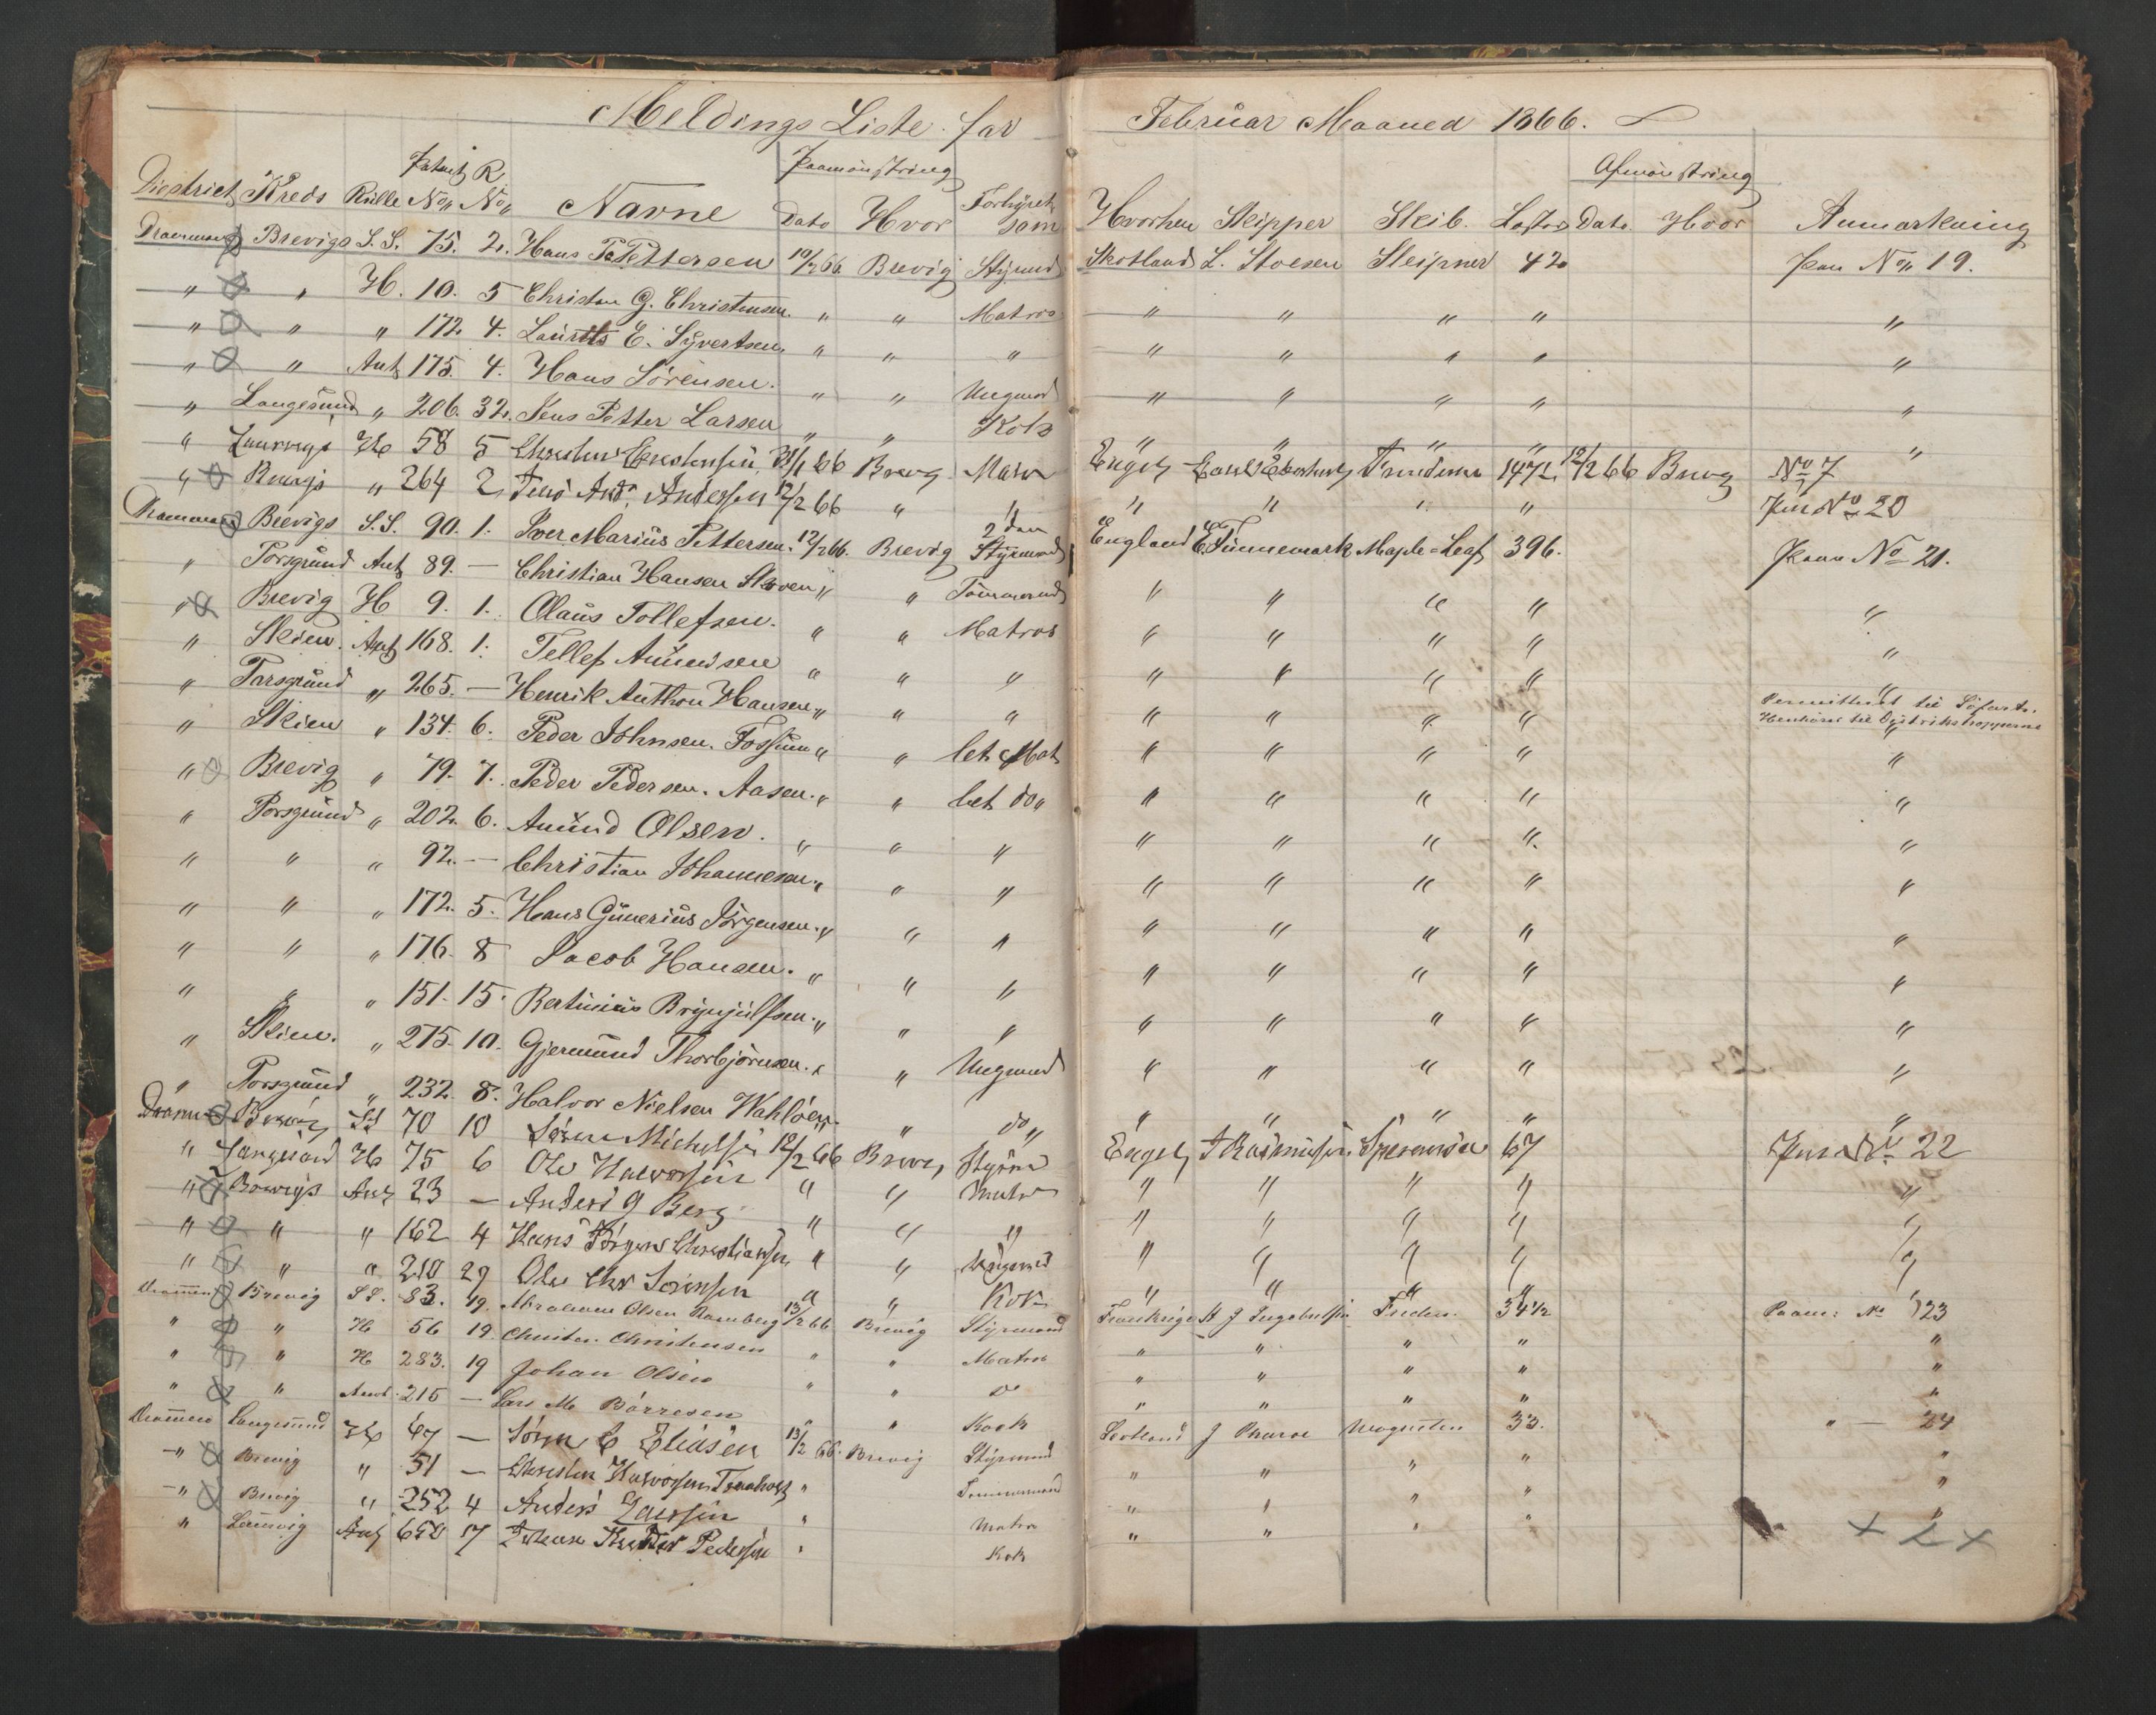 Meldings Liste for Februar Maaned 1866.
Patent R Paamönstring Afmönstring
District Kreds Rülle No No Navne Dato Hvor Forhyret som Hvorhen Skipper Skib. Laster Dato Hvor Anmærkning
Brevigs S.S. 75. 2. Hans Pettersen 10/2 66 Brevig Styrmd Skotland L. Stoesen Sleipner 42 Paa No 19.
" " H. 10. 5 Christen G. Christensen. " " Matros " " " " "
" " " 172 4. Laurits E. Syvertsen " " " " " " " "
" " Ant 175. 4. Hans Sörensen. " " Ungmd " " " " "
" Langesund " 206. 32. Jens Petter Larsen " " Kok " " " " "
" Laurvigs H 58 5 31/1 66 Brevg Matr Engel 147½ 12/2 66 Brevg No 7
" Brevigs " 264 2 Jens And. Andersen 12/2 66 " " " " " " No 20
Drammens Brevigs S.S. 90. 1. Iver Marius Pettersen. 12/2 66. Brevig 2den Styrmand England E Tinnemark Maple-Leaf 396. Paa No 21.
" Porsgrund Ant 89. — Christian Hansen " " Tömmermd " " " " "
" Brevig H 9. 1. Olaus Tollefsen. " " Matros " " " " "
" Skien. Ant 168. 1. Tellef Amundsen " " " " " " " "
" Porsgrund " 265. — Henrik Anthon Hansen " " " " " " " Permitteret til Söfart. Henhörer til Distriktstropperne
" Skien " 134. 6. Peder Johnsen. Fossum " " let Mat " " " " "
" Brevig " 79. 7. Peder Pedersen. Aasen. " " let do " " " " "
" Porsgrund " 202. 6. Amund Olsen. " " " " " " " "
" " " 92. — Christian Johannesen. " " " " " " " "
" " " 172. 5. Hans Gunerius Jörgensen. " " " " " " " "
" " " 176. 8 Jacob Hansen. " " " " " " " "
" " " 151. 15. Bertinius Brynjulfsen. " " " " " " " "
" Skien. " 275. 10. Gjermund Thorbjörnsen. " " Ungmd " " " " "
" Porsgrund " 232. 8. Halvor Nielsen " " do " " " " "
Dramn Brevig SS 70 10 Sören Michelsen 12/2 66 Brevg Styrm Engel J Rasmusen 67 No 22
" Langesund H 75 6 Ole Halvorsen " " Matr " " " " "
" Brevigs Ant 23 — Anders G Berg " " " " " " " "
" " " 162 4 Hans Jörgen Christiansen " " Ungmd " " " " "
" " " 210 29 Ole Chr Sörensen " " Kok " " " "
Drammen Brevig SS. 83. 19. Abraham Olsen Ramberg 13/2 66 Brevig Styrmand Frankrige 34½ Paam: No 23
" " H 56 19. Christen Christensen " " Matros " " " " "
" " H 283. 19 Johan Olsen " " do " " " " "
" " Ant. 215 — Lars M Börresen " " Kock " " " " "
Drammen Langesund H 67 — Sören C Eliasen 13/2 66. Brevig Styrmand Skotland J 33. " — 24
" Brevig " 51 — Christen Halvorsen " Tömmermand " " " " "
" Brevig " 252 4 Anders Larsen " Matro " " " " "
" Laurvig Ant 650 17 Johan Pedersen " Kok " " " " "
+ 2 +